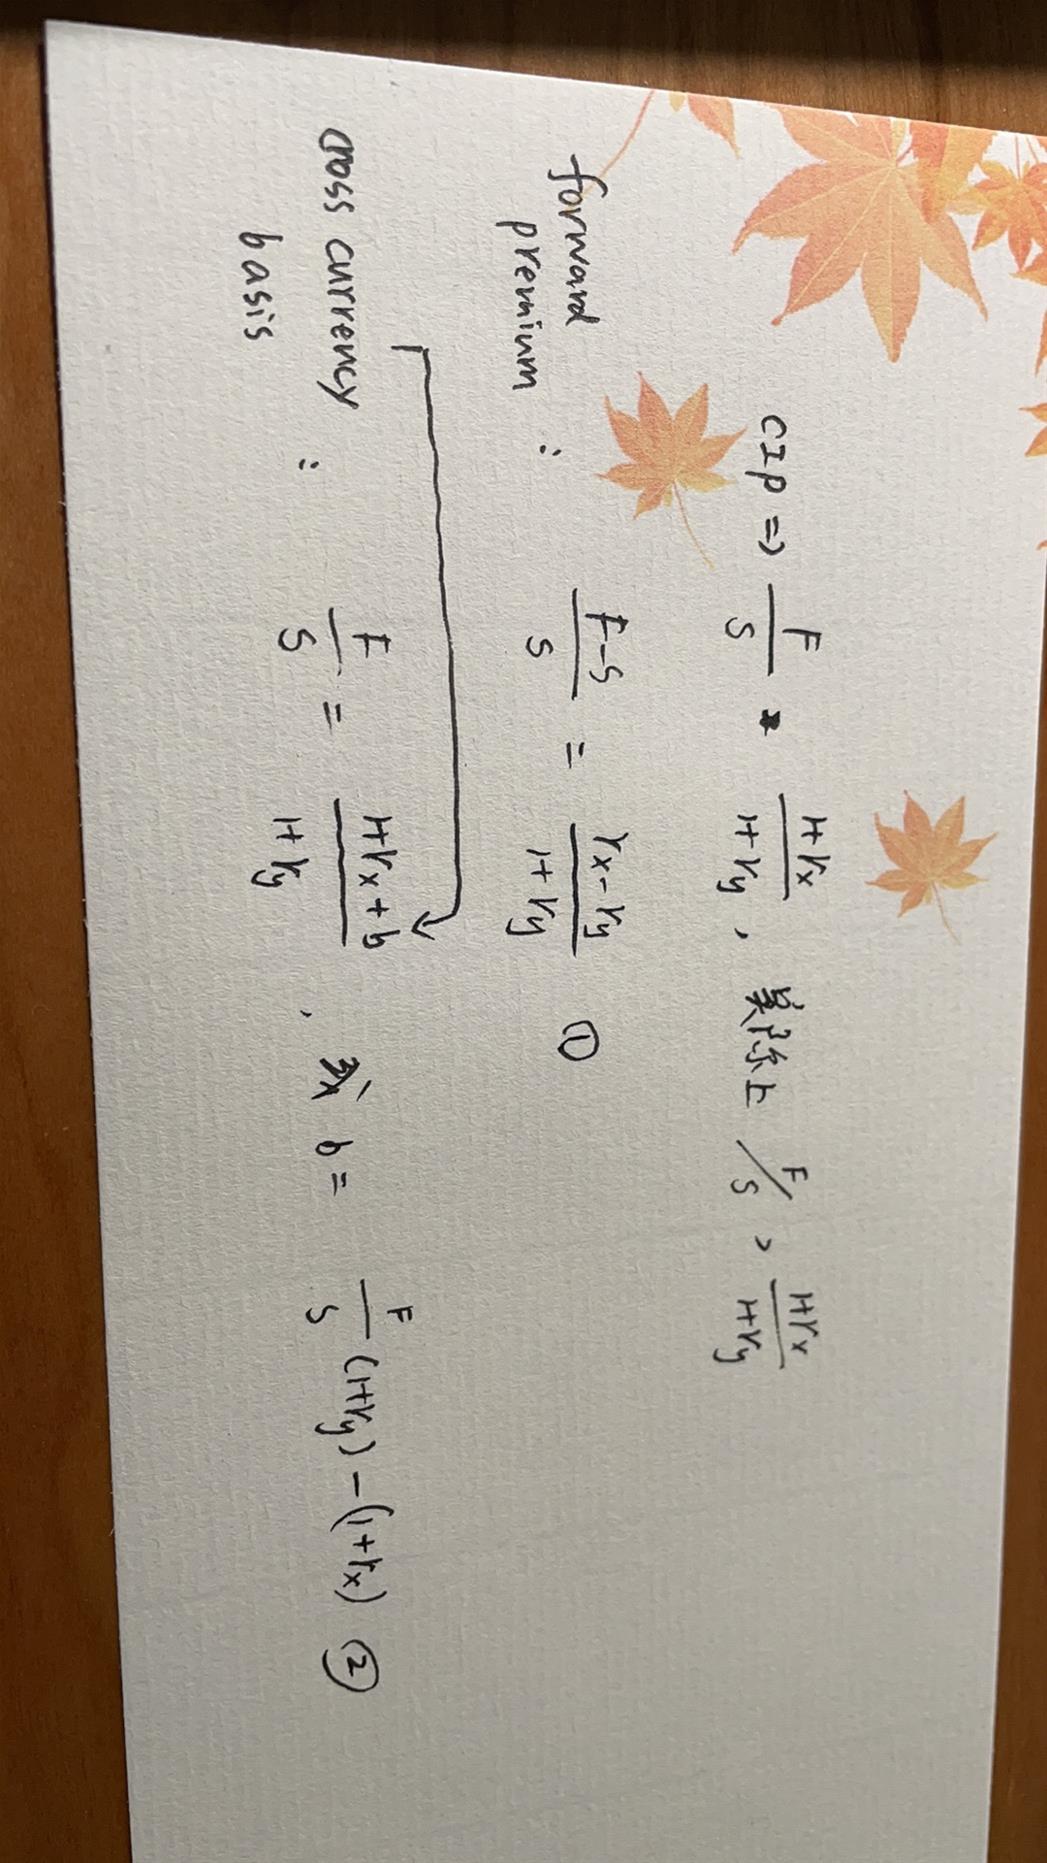 CIP ⇒ F/S = (1+rx)/(1+ry) , 實際上 F/S > (1+rx)/(1+ry)
forward premium : (F-S)/S = (rx-ry)/(1+ry) ①
cross currency basis : F/S = (1+rx+b)/(1+ry) , b = F/S (1+ry) - (1+rx) ②